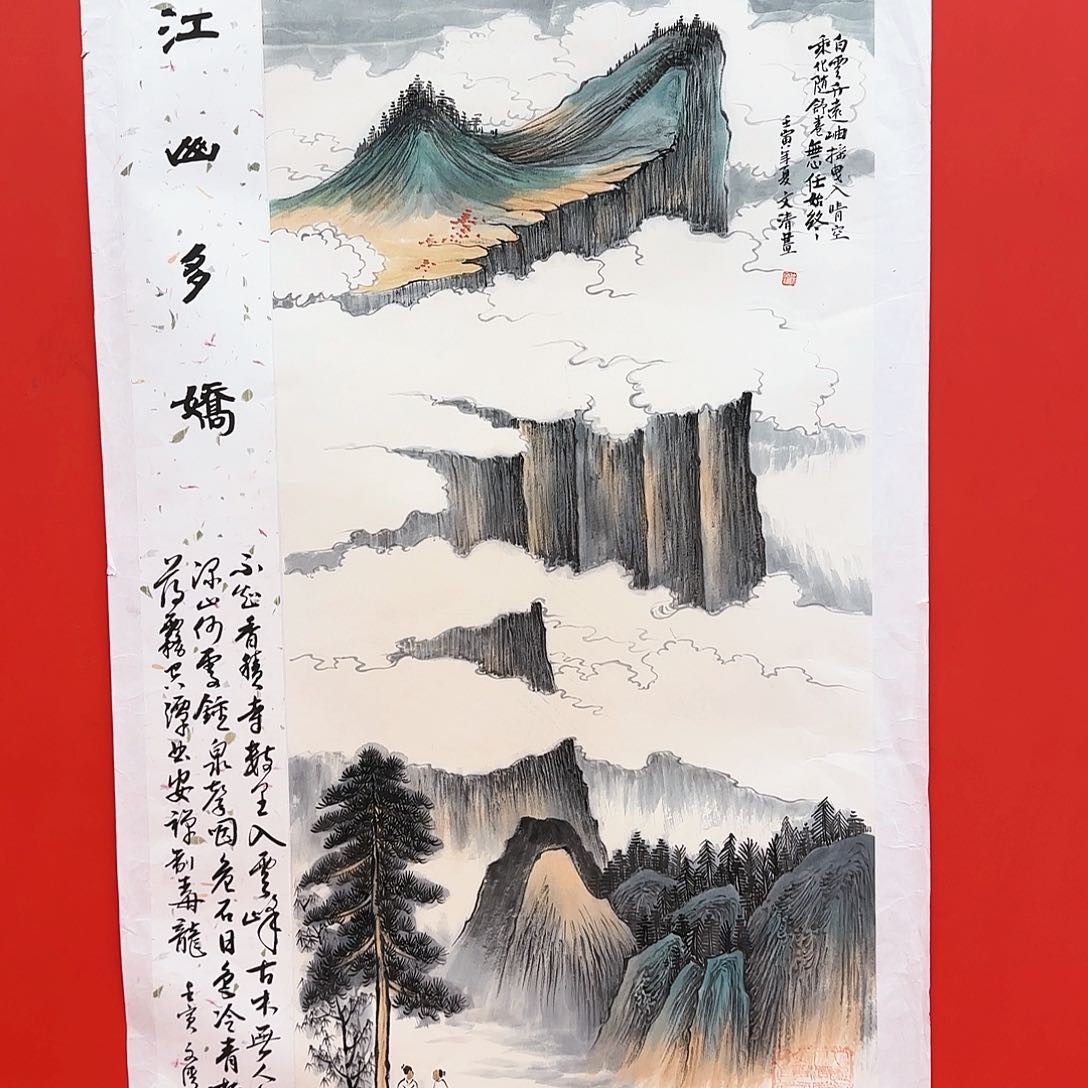 白雲升遠岫摇曳入晴空
乘化随舒卷無心任始終
壬寅年夏文清畫
江山多嬌
不知香積寺數里入雲峰古木無人
深山何處鐘泉聲咽危石日色冷青
薄霧空潭曲安禪制毒龍
壬寅文清